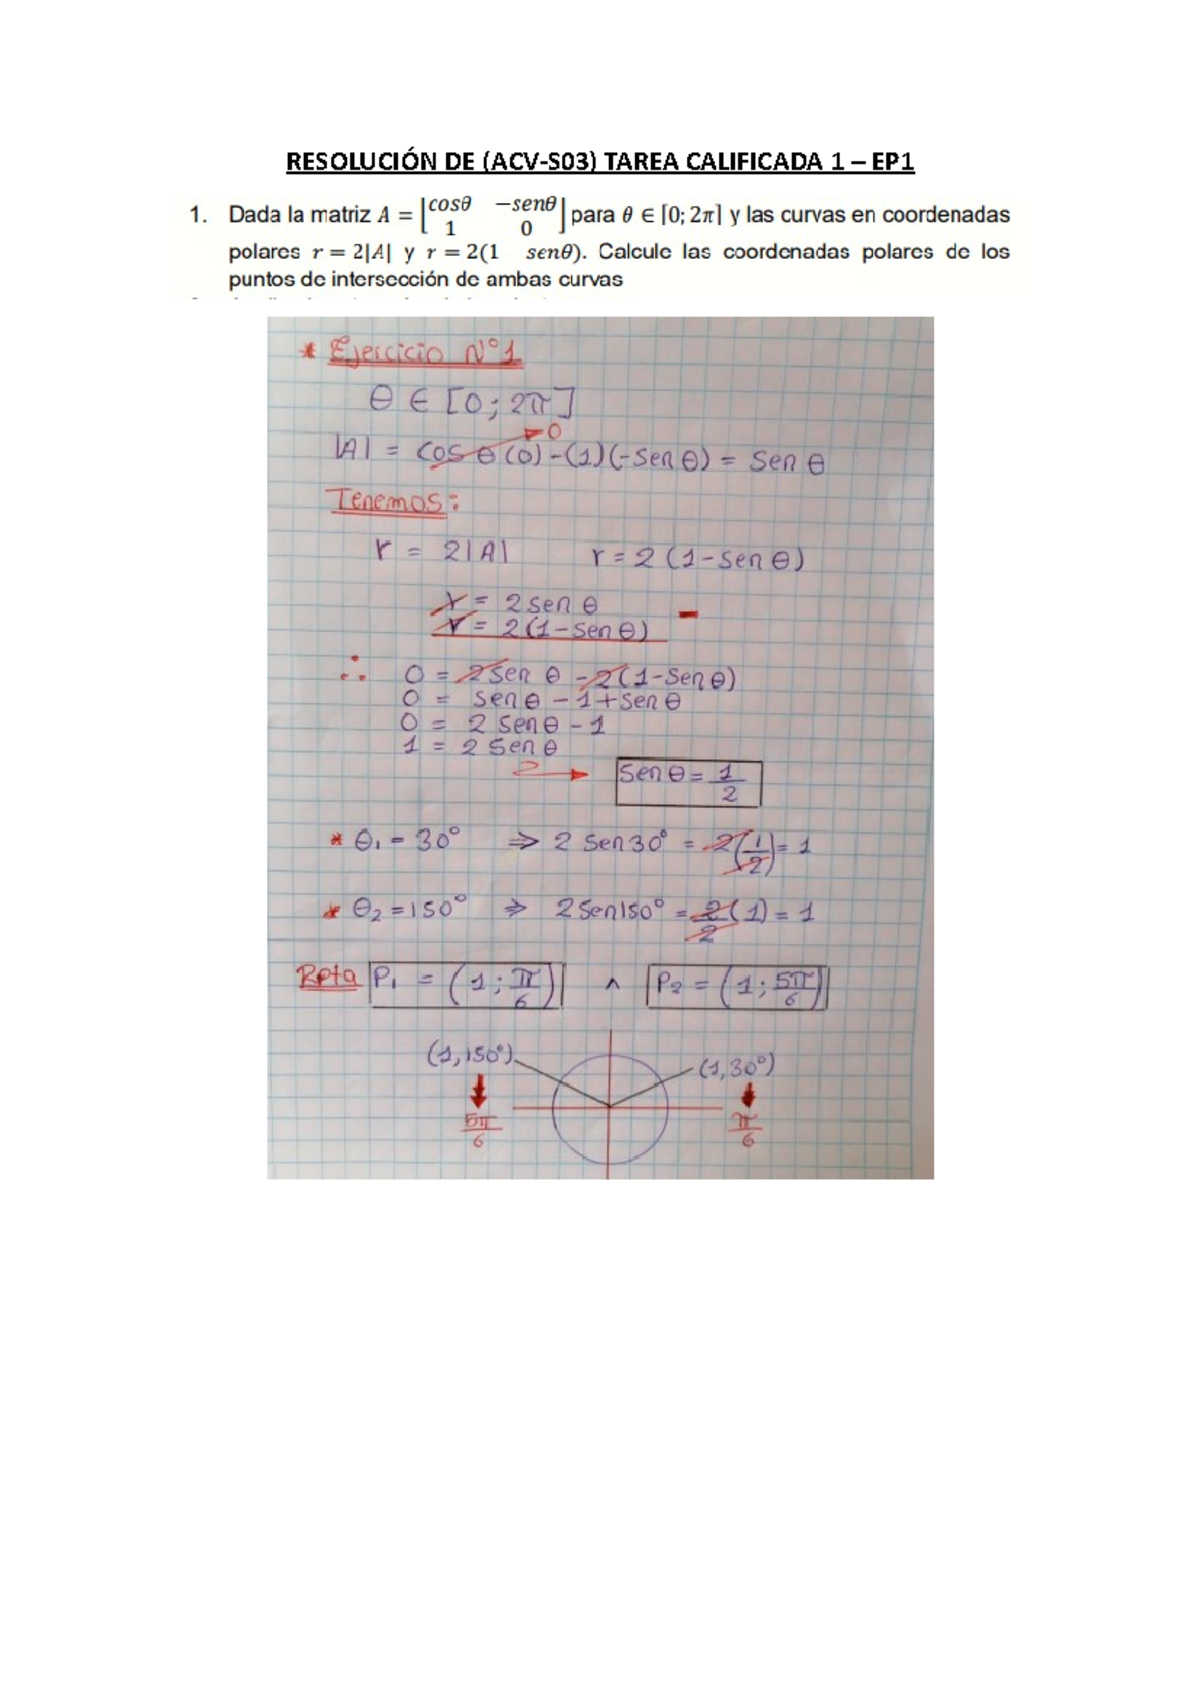 RESOLUCIÓN DE (ACV-S03) TAREA CALIFICADA 1 – EP1
1. Dada la matriz A = [cosθ -senθ para θ ∈ [0; 2π] y las curvas en coordenadas
1 0]
polares r = 2|A| y r = 2(1 senθ). Calcule las coordenadas polares de los
puntos de intersección de ambas curvas
* Ejercicio N°1
θ ∈ [0; 2π]
0
|A| = cos θ (0) - (1)(-sen θ) = sen θ
Tenemos:
r = 2|A| r = 2 (1 - sen θ)
r = 2 sen θ
r = 2 (1 - sen θ) -
∴ 0 = 2 sen θ - 2 (1 - sen θ)
0 = sen θ - 1 + sen θ
0 = 2 sen θ - 1
1 = 2 sen θ
2 → sen θ = 1/2
* θ₁ = 30° ⇒ 2 sen 30° = 2(1/2) = 1
* θ₂ = 150° ⇒ 2 sen 150° = 2/2 (1) = 1
Rpta P₁ = (1; π/6) ∧ P₂ = (1; 5π/6)
(1, 150°) (1, 30°)
5π/6 π/6